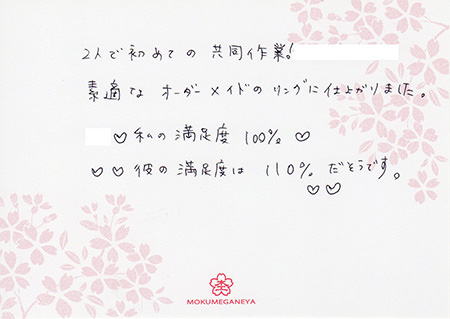 2人で初めての共同作業!
素適なオーダーメイドのリングに仕上がりました。
♡私の満足度 100% ♡
♡♡彼の満足度は 110% だそうです。
♡♡
MOKUMEGANEYA